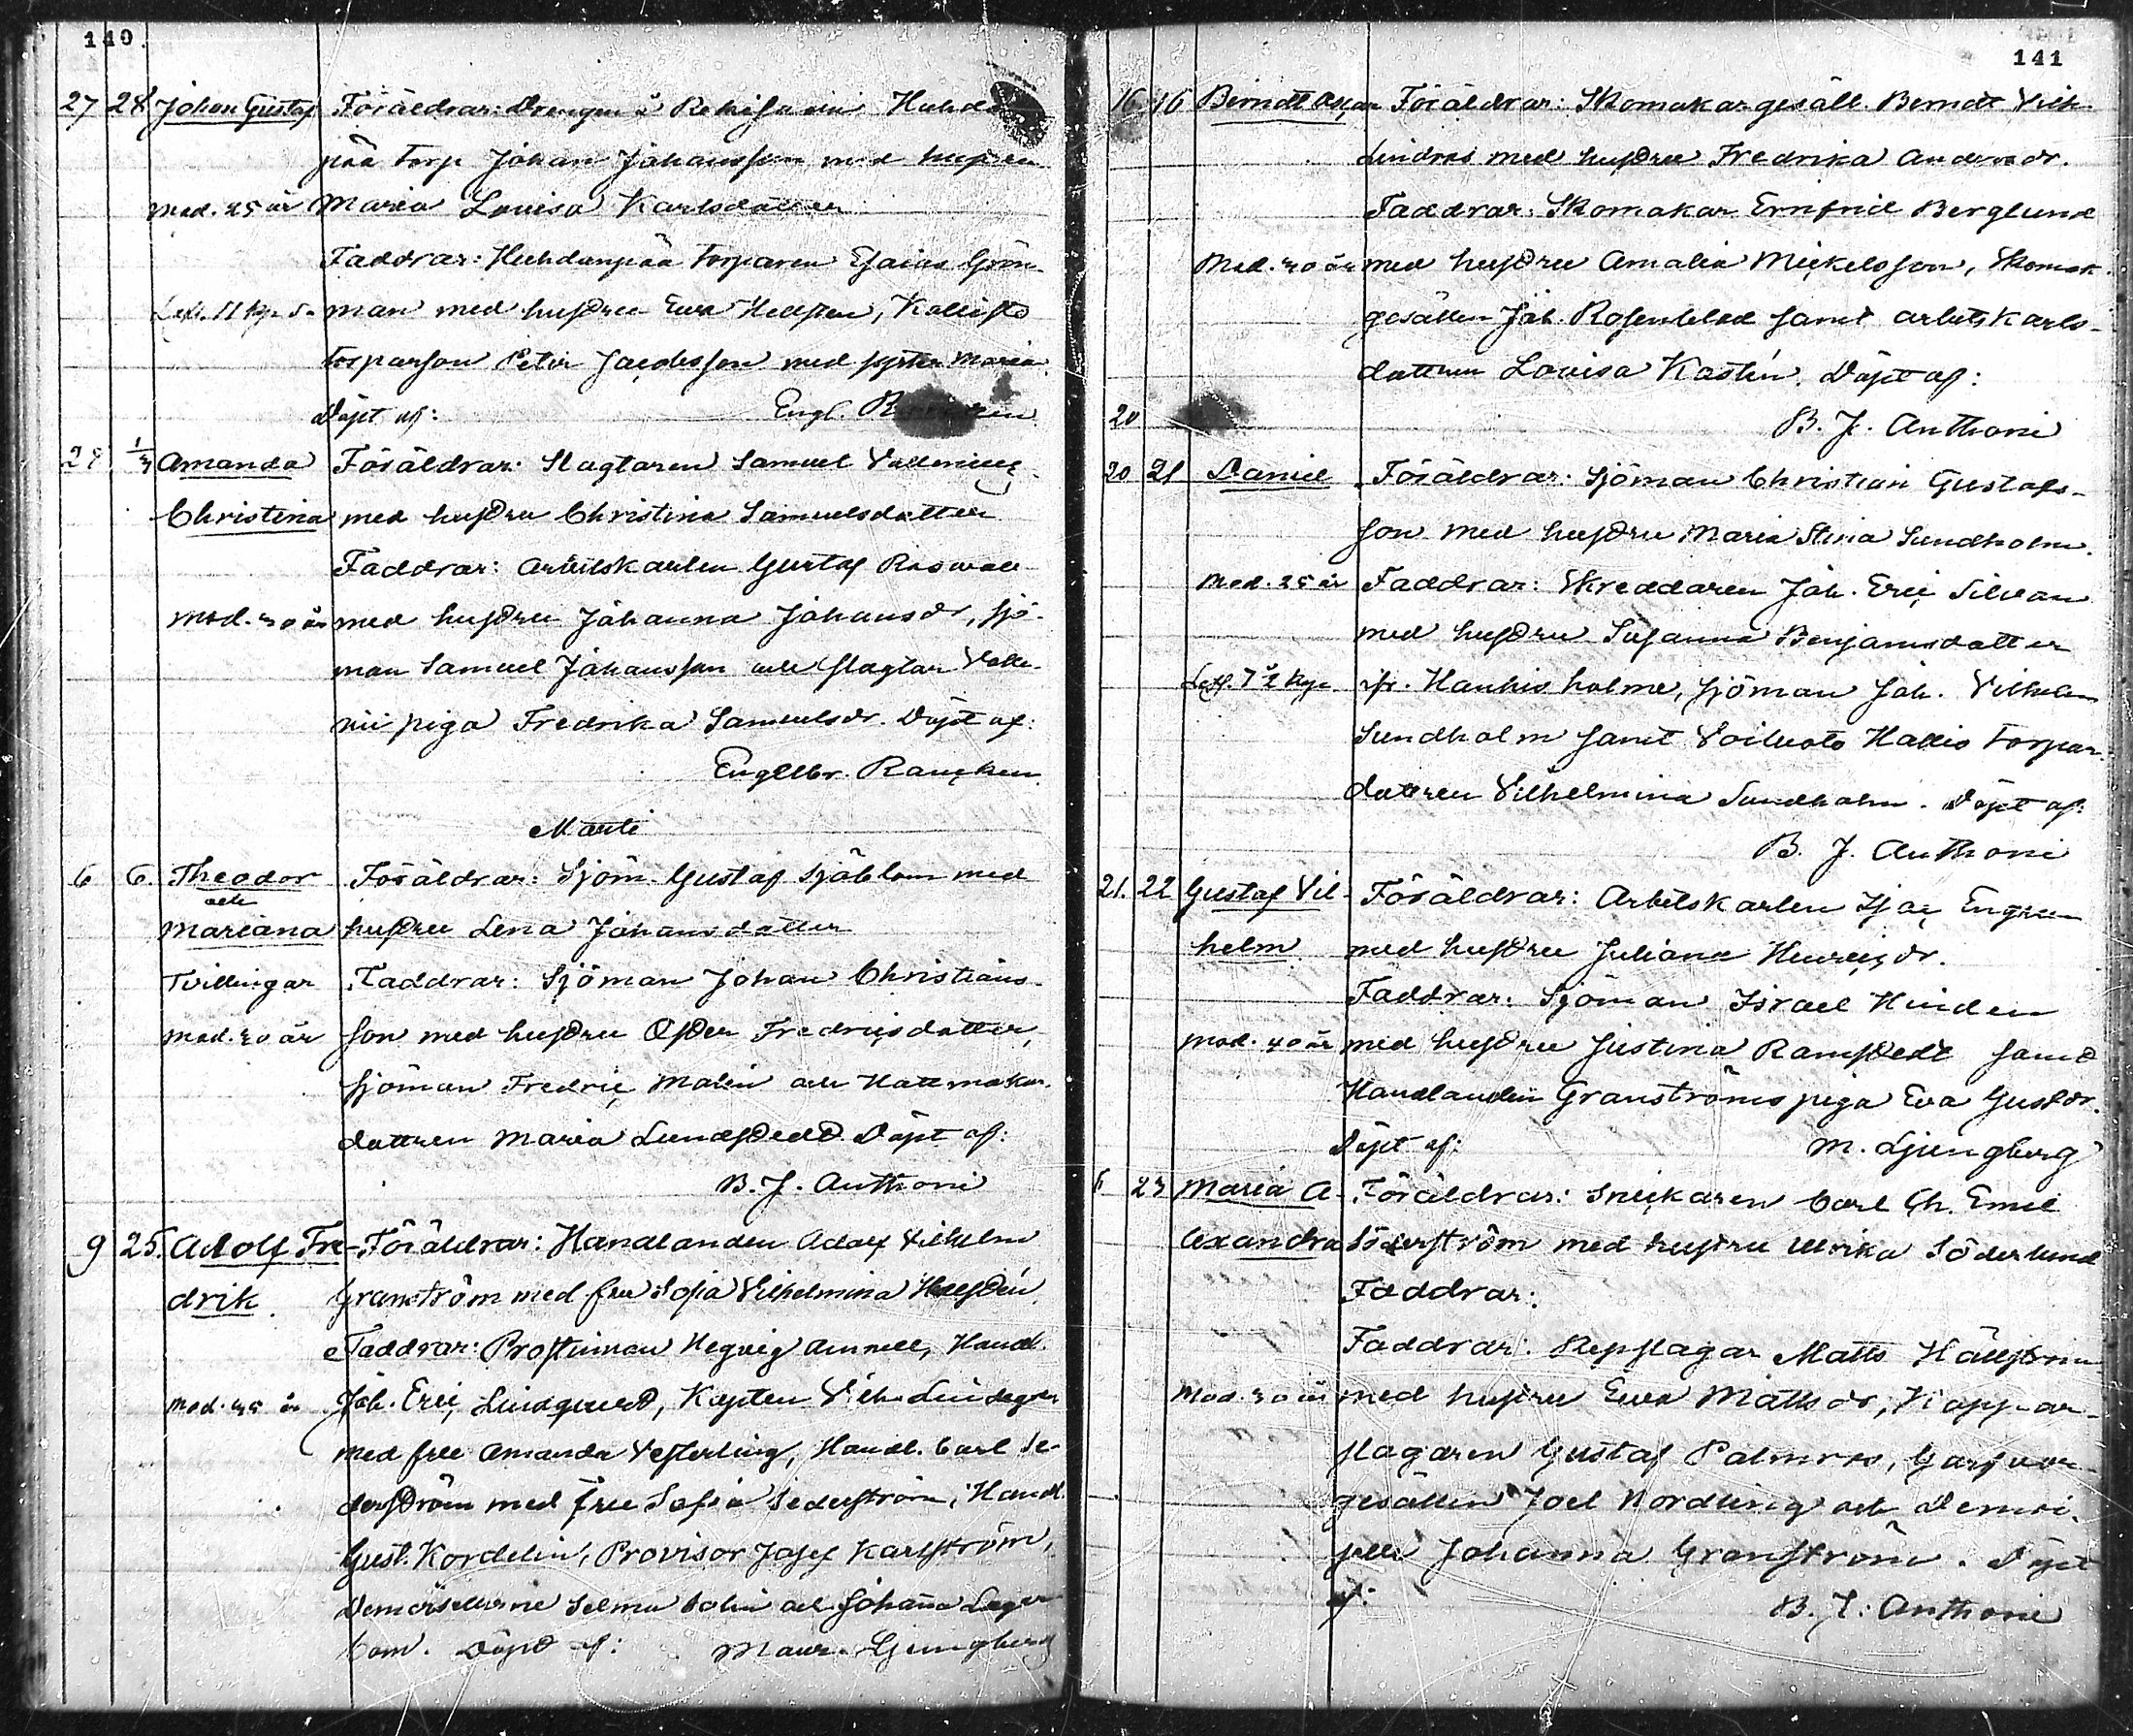 140.
27 28 Johan Gustaf Föräldrar: Drengen å
pää torp Johan Johansson med hustrun
Mod. 25 år Maria Lovisa Karlsdotter
Faddrar: Huhdanpää torparen Esaias Grön-
man med hustru Eva Hellsten,
torparson Petter Jacobsson med syster Maria.
Döpt af: Engl.
28 1/3 Amanda Föräldrar: Slagtaren Samuel
Christina med hustru Christina Samuelsdotter
Faddrar: Arbetskarlen Gustaf Roswall
Mod. 30 år med hustru Johanna Johansdr, sjö-
man Samuel Johansson och slagtar Valle-
nii piga Fredrika Samuelsdr. Döpt af:
Engelbr. Rancken
Marti
6 6. Theodor Föräldrar: Sjöm. Gustaf Sjöblom med
och
Mariana hustru Lena Johansdotter
Tvillingar Faddrar: Sjöman Johan Christians-
Mod. 30 år son med hustru Ester Fredricsdotter,
sjöman Fredric Malin och Hattmakar-
dottren Maria Lundstedt. Döpt af:
B. J. Anthoni
9 25. Adolf Fre- Föräldrar: Handlanden Adolf Vilhelm
drik. Granström med fru Sofia Vilhelmina Hellstén
Faddrar: Prostinnan Hegvig Amnell, Handl.
Mod. 35 år Joh. Eric Lindqvist, Kapten Vilh. Lindegren
med fru Amanda Vesterling, Handl. Carl Se-
derström med fru Sofia Sederström, Handl.
Gust. Kordelin, Provisor Josef Karlström,
Demoisellerne Selma Bolin och Johanna Lager
bom. Döpt af: Maur. Ljungberg
141
16 16 Berndt Oscar Föräldrar: Skomakar gesäll Berndt Vilh.
Lindros med hustru Fredrika Andersdr.
Faddrar: Skomakar Ernfrid Berglund
Mod. 30 år med hustru Amalia Mickelsson, Skomak.
gesällen Joh. Rosenblad samt arbetskarls-
dottren Lovisa Kastén. Döpt af:
20 B. J. Anthoni
20 21 Daniel Föräldrar: Sjöman Christian Gustafs-
son med hustru Maria Stina Sundholm.
Mod. 25 år Faddrar: Skreddaren Joh. Eric Silvan
med hustru Susanna Benjaminsdotter
ifr. Hanhis holme, sjöman Joh. Vilhelm
Sundholm samt Voiluoto Hallis torpar-
dottren Vilhelmina Sundholm. Döpt af:
B. J. Anthoni
21. 22 Gustaf Vil- Föräldrar: Arbetskarlen Isac Engren
helm. med hustru Juliana Henricsdr.
Faddrar: Sjöman Israel Hinden
Mod. 40 år med hustru Justina Ramstedt samt
Handlanden Granströms piga Eva Gustdr.
Döpt af: M. Ljungberg
6 23 Maria A- Föräldrar: Snickaren Carl Ch. Emil
lexandra Söderström med hustru Ulrika Söderlund
Faddrar:
Faddrar: Repslagar Matts Hällström
Mod. 30 år med hustru Eva Mattsdr, Koppar-
slagaren Gustaf Palmroos, Garfvar-
gesällen Joel Nordling och Demoi-
selle Johanna Granström. Döpt
af: B. J. Anthoni